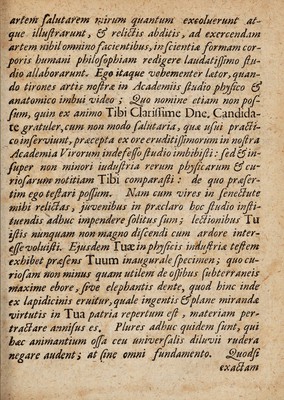 artem salutarem mirum quantum excoluerunt at-
que illustrarunt, & relictis abditis, ad exercendam
artem nihil omnino facientibus, in scientiæ formam cor-
poris humani philosophiam redigere laudatissimo stu-
dio allaborarunt. Ego itaque vehementer lætor, quan-
do tirones artis nostræ in Academiis studio physico &
anatomico imbui video; Quo nomine etiam non pos-
sum, quin ex animo Tibi Clarissime Dne. Candida-
te gratuler, cum non modo salutaria, quæ usui practi-
co inserviunt, præcepta ex ore eruditissimorum in nostra
Academia Virorum indefesso studio imbibisti: sed & in-
super non minori industria rerum physicarum & cu-
riosarum notitiam Tibi comparasti: de quo præser-
tim ego testari possim. Nam cum vires in senectute
mihi relictas, juvenibus in præclaro hoc studio insti-
tuendis adhuc impendere solitus sim; lectionibus Tu
istis nunquam non magno discendi cum ardore inter-
esse voluisti. Ejusdem Tuæ in physicis industriæ testem
exhibet præsens Tuum inaugurale specimen; quo cu-
riosam non minus quam utilem de ossibus subterraneis
maxime ebore, sive elephantis dente, quod hinc inde
ex lapidicinis eruitur, quale ingentis & plane mirandæ
virtutis in Tua patria repertum est, materiam per-
tractare annisus es. Plures adhuc quidem sunt, qui
hæc animantium ossa ceu universalis diluvii rudera
negare audent; at sine omni fundamento. Quodsi
exactam